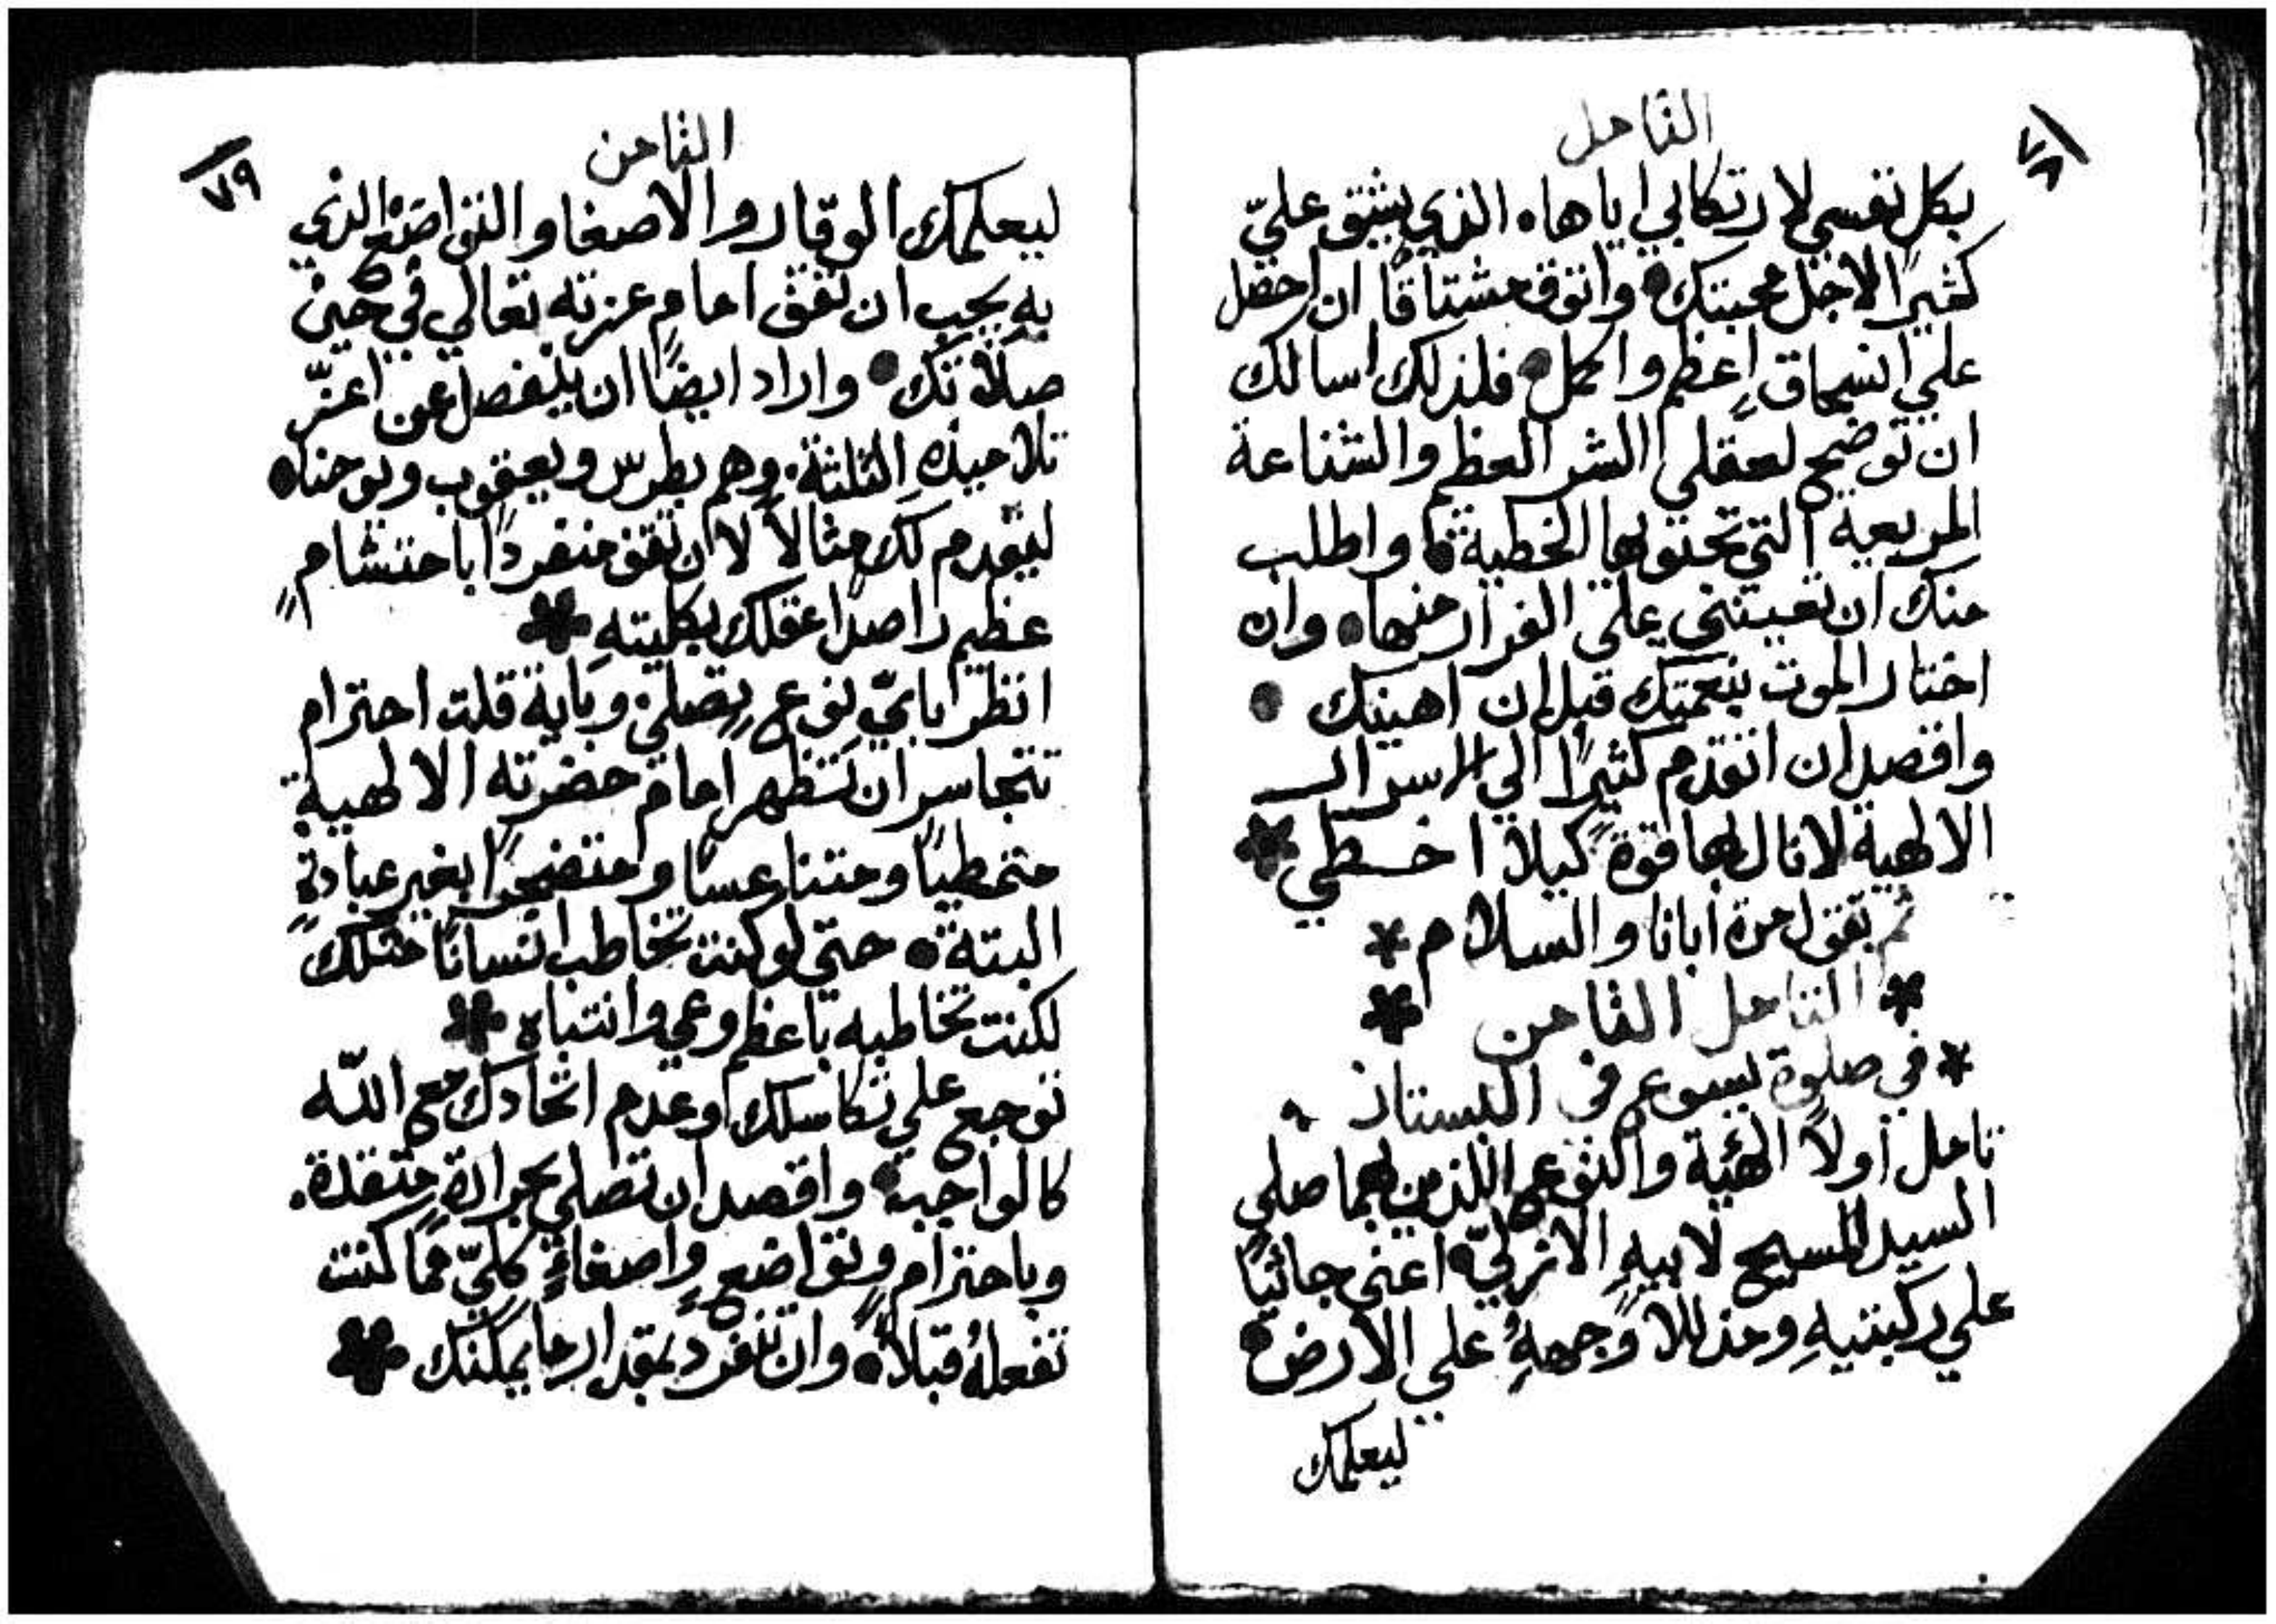 التامل
٧٨
بكل نفسي لارتكابي اياها، الذي يشق عليّ
كثيرًا لاجل محبتك • واتوق مشتاقًا ان احصل
علي انسحاق اعظم واكمل • فلذلك اسالك
ان توضح لعقلي الشر العظم والشناعة
المريعة التي تحتويها الخطية • واطلب
منك ان تعينني علي الفرار منها • وان
اختار الموت بنعمتك قبل ان اهينك •
واقصد ان اتقدم كثيرًا الي الاسرار
الالهية لانال بها قوة كيلا اخطي *
ثم تقول مرة ابانا والسلام *
* التامل الثامن *
* في صلوة يسوع في البستان
تامل اولاً الهئية والنوع اللذين بهما صلي
السيد المسيح لابيهِ الازليّ • اعني جاثيًا
علي ركبتيهِ ومذللاً وجههُ علي الارض •
ليعلمك
الثامن
٧٩
ليعلمك الوقار والاصغا والتواضع الذي
بهِ يجب ان تقف امام عزته تعالي في حين
صلاتك • واراد ايضًا ان ينفصل عن اعزّ
تلاميذهِ الثلثة • وهم بطرس ويعقوب ويوحنا •
ليقدم لك مثالاً لان تقف منفردًا باحتشامٍ
عظيم راصدًا عقلك بكليتهِ *
انظر باي نوع تصلي وباية قلت احترام
تتجاسر ان تظهر امام حضرته الالهية
متمطيًا ومتناعسًا ومتضجرًا بغير عبادةٍ
البتة • حتي لو كنت تخاطب انسانًا مثلك
لكنت تخاطبه باعظم وعي وانتباه *
توجع علي تكاسلك وعدم اتحادك مع اللّه
كالواجب • واقصد ان تصلي بحرارة متقدة •
وباحترامٍ وتواضعٍ واصغاءٍ كليّ مما كنت
تفعلهُ قبلاً • وان تنفرد بمقدار ما يمكنك *